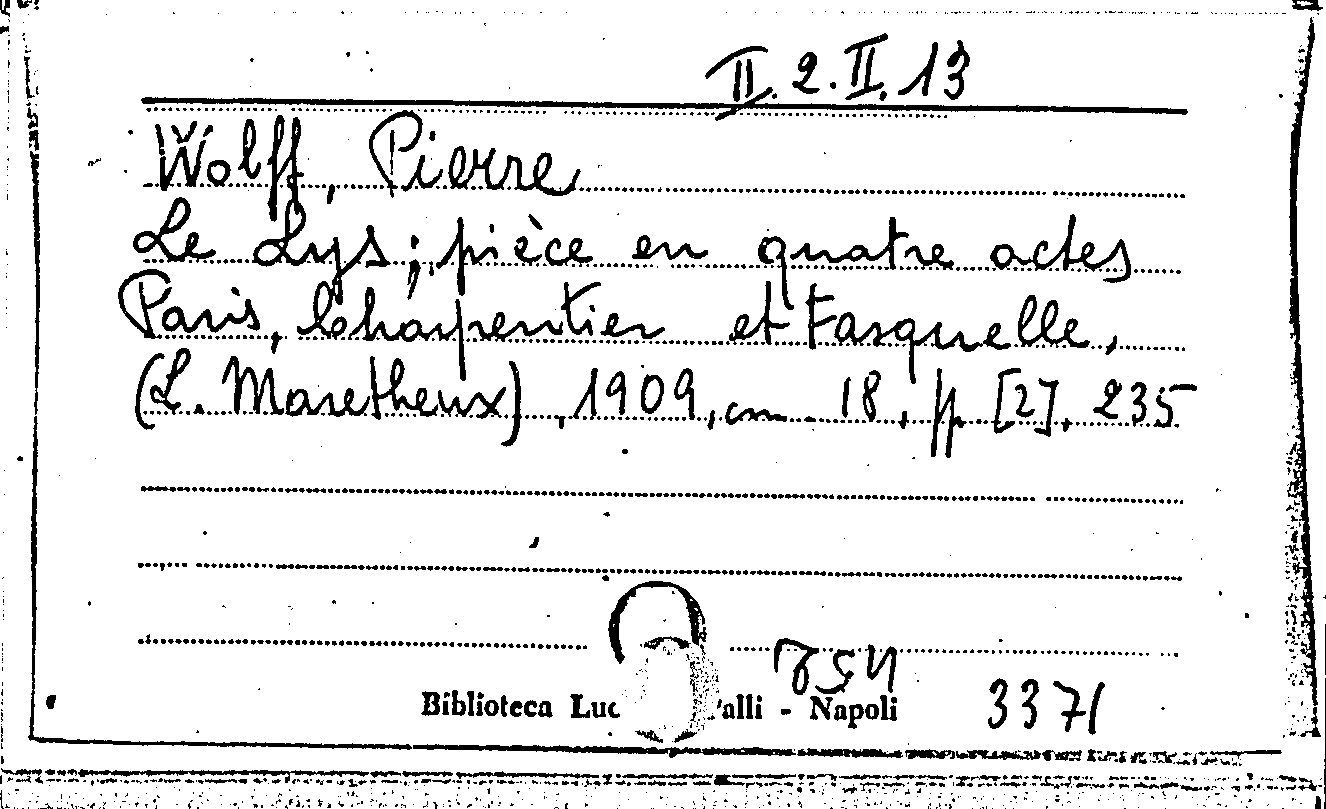 II. 2. II. 13
Wolff, Pierre
Le Lys; pièce en quatre actes
Paris, Charpentier et Fasquelle,
(L. Maretheux), 1909, cm. 18, pp. [2], 235
Biblioteca Luc alli - Napoli 3371